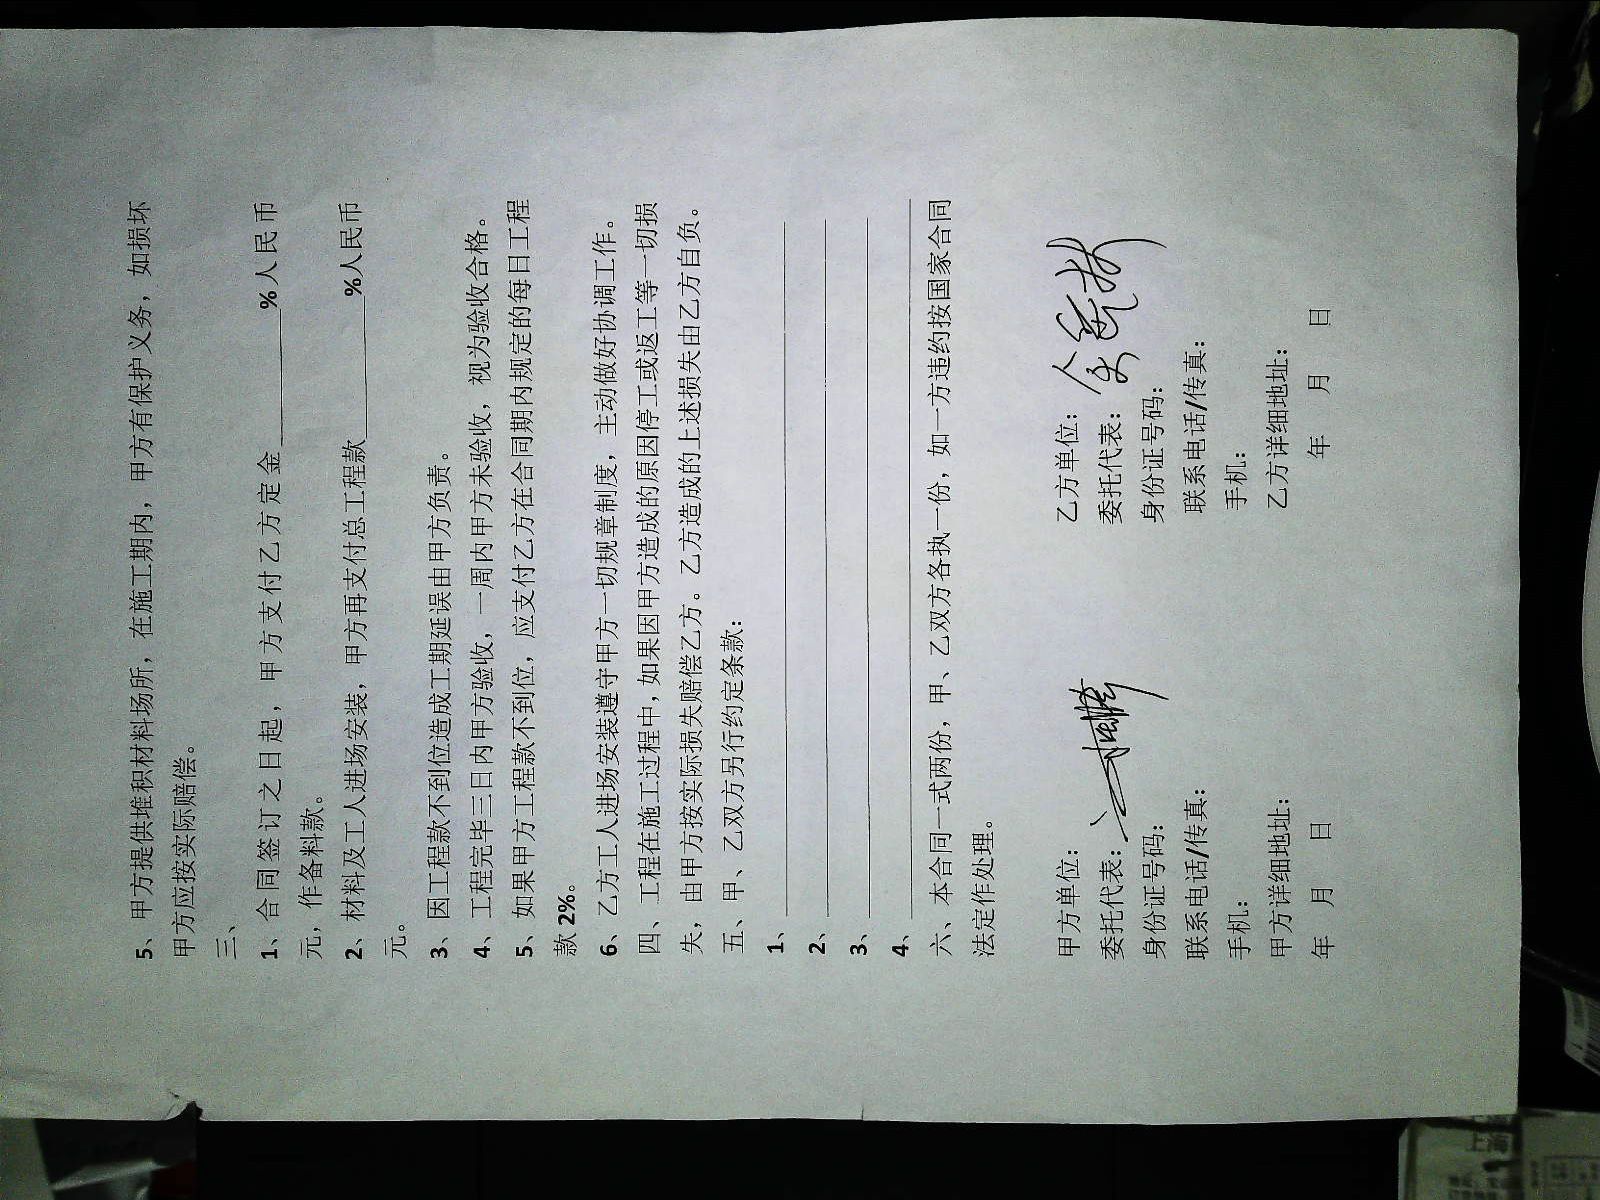 5、甲方提供堆积材料场所，在施工期内，甲方有保护义务，如损坏
甲方应按实际赔偿。
三、
1、合同签订之日起，甲方支付乙方定金________%人民币
元，作备料款。
2、材料及工人进场安装，甲方再支付总工程款________%人民币
元。
3、因工程款不到位造成工期延误由甲方负责。
4、工程完毕三日内甲方验收，一周内甲方未验收，视为验收合格。
5、如果甲方工程款不到位，应支付乙方在合同期内规定的每日工程
款 2%。
6、乙方工人进场安装遵守甲方一切规章制度，主动做好协调工作。
四、工程在施工过程中，如果因甲方造成的原因停工或返工等一切损
失，由甲方按实际损失赔偿乙方。乙方造成的上述损失由乙方自负。
五、甲、乙双方另行约定条款：
1、
2、
3、
4、
六、本合同一式两份，甲、乙双方各执一份，如一方违约按国家合同
法定作处理。
甲方单位： 乙方单位：
委托代表： 委托代表：
身份证号码： 身份证号码：
联系电话/传真： 联系电话/传真：
手机： 手机：
甲方详细地址： 乙方详细地址：
年 月 日 年 月 日